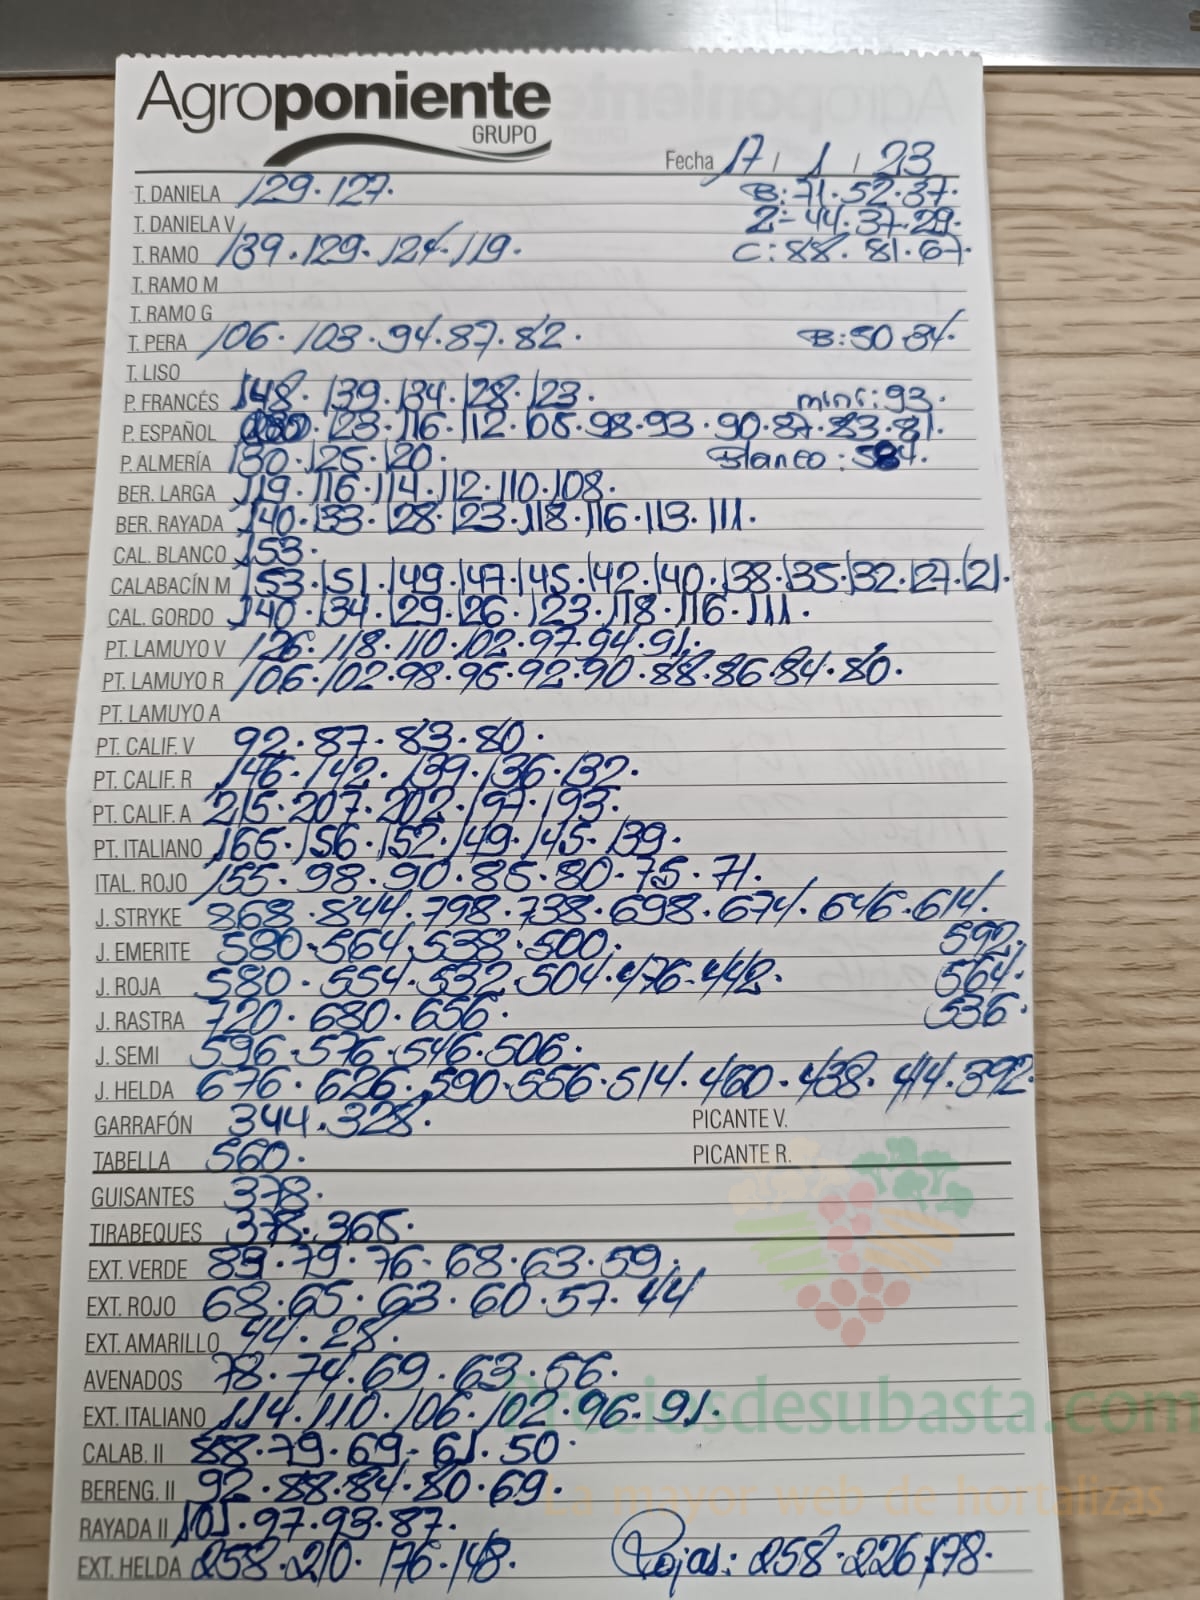 Agroponiente
GRUPO
Fecha 17 / 1 / 23
T. DANIELA 129. 127. B: 71. 52. 37.
T. DANIELA V Z= 44. 37. 29.
T. RAMO 139. 129. 124. 119. C: 88. 81. 67.
T. RAMO M
T. RAMO G
T. PERA 106. 103. 94. 87. 82. B: 50. 34.
T. LISO
P. FRANCÉS 148. 139. 134. 128. 123. mini: 93.
P. ESPAÑOL 123. 116. 112. 105. 98. 93. 90. 87. 83. 81.
P. ALMERÍA 130. 125. 120. Blanco: 584.
BER. LARGA 119. 116. 114. 112. 110. 108.
BER. RAYADA 140. 133. 128. 123. 118. 116. 113. 111.
CAL. BLANCO 153.
CALABACÍN M 153. 151. 149. 147. 145. 142. 140. 138. 135. 132. 127. 121.
CAL. GORDO 140. 134. 129. 126. 123. 118. 116. 111.
PT. LAMUYO V 126. 118. 110. 102. 97. 94. 91.
PT. LAMUYO R 106. 102. 98. 95. 92. 90. 88. 86. 84. 80.
PT. LAMUYO A
PT. CALIF. V 92. 87. 83. 80.
PT. CALIF. R 146. 142. 139. 136. 132.
PT. CALIF. A 215. 207. 202. 197. 193.
PT. ITALIANO 165. 156. 152. 149. 145. 139.
ITAL. ROJO 155. 98. 90. 85. 80. 75. 71.
J. STRYKE 868. 844. 798. 738. 698. 674. 646. 614.
J. EMERITE 580. 564. 538. 500. 592.
J. ROJA 580. 554. 532. 504. 476. 442. 564.
J. RASTRA 720. 680. 656. 536.
J. SEMI 596. 576. 546. 506.
J. HELDA 676. 626. 590. 556. 514. 460. 438. 414. 392.
GARRAFÓN 344. 328. PICANTE V.
TABELLA 560. PICANTE R.
GUISANTES 378.
TIRABEQUES 378. 365.
EXT. VERDE 89. 79. 76. 68. 63. 59.
EXT. ROJO 68. 65. 63. 60. 57. 44
EXT. AMARILLO 44. 28.
AVENADOS 78. 74. 69. 63. 56.
Preciosdesubasta.com
EXT. ITALIANO 114. 110. 106. 102. 96. 91.
CALAB. II 88. 79. 69. 61. 50.
BERENG. II 92. 88. 84. 80. 69.
La mayor web de hortalizas
RAYADA II 101. 97. 93. 87.
EXT. HELDA 258. 210. 176. 148. Rojas: 258. 226. 178.